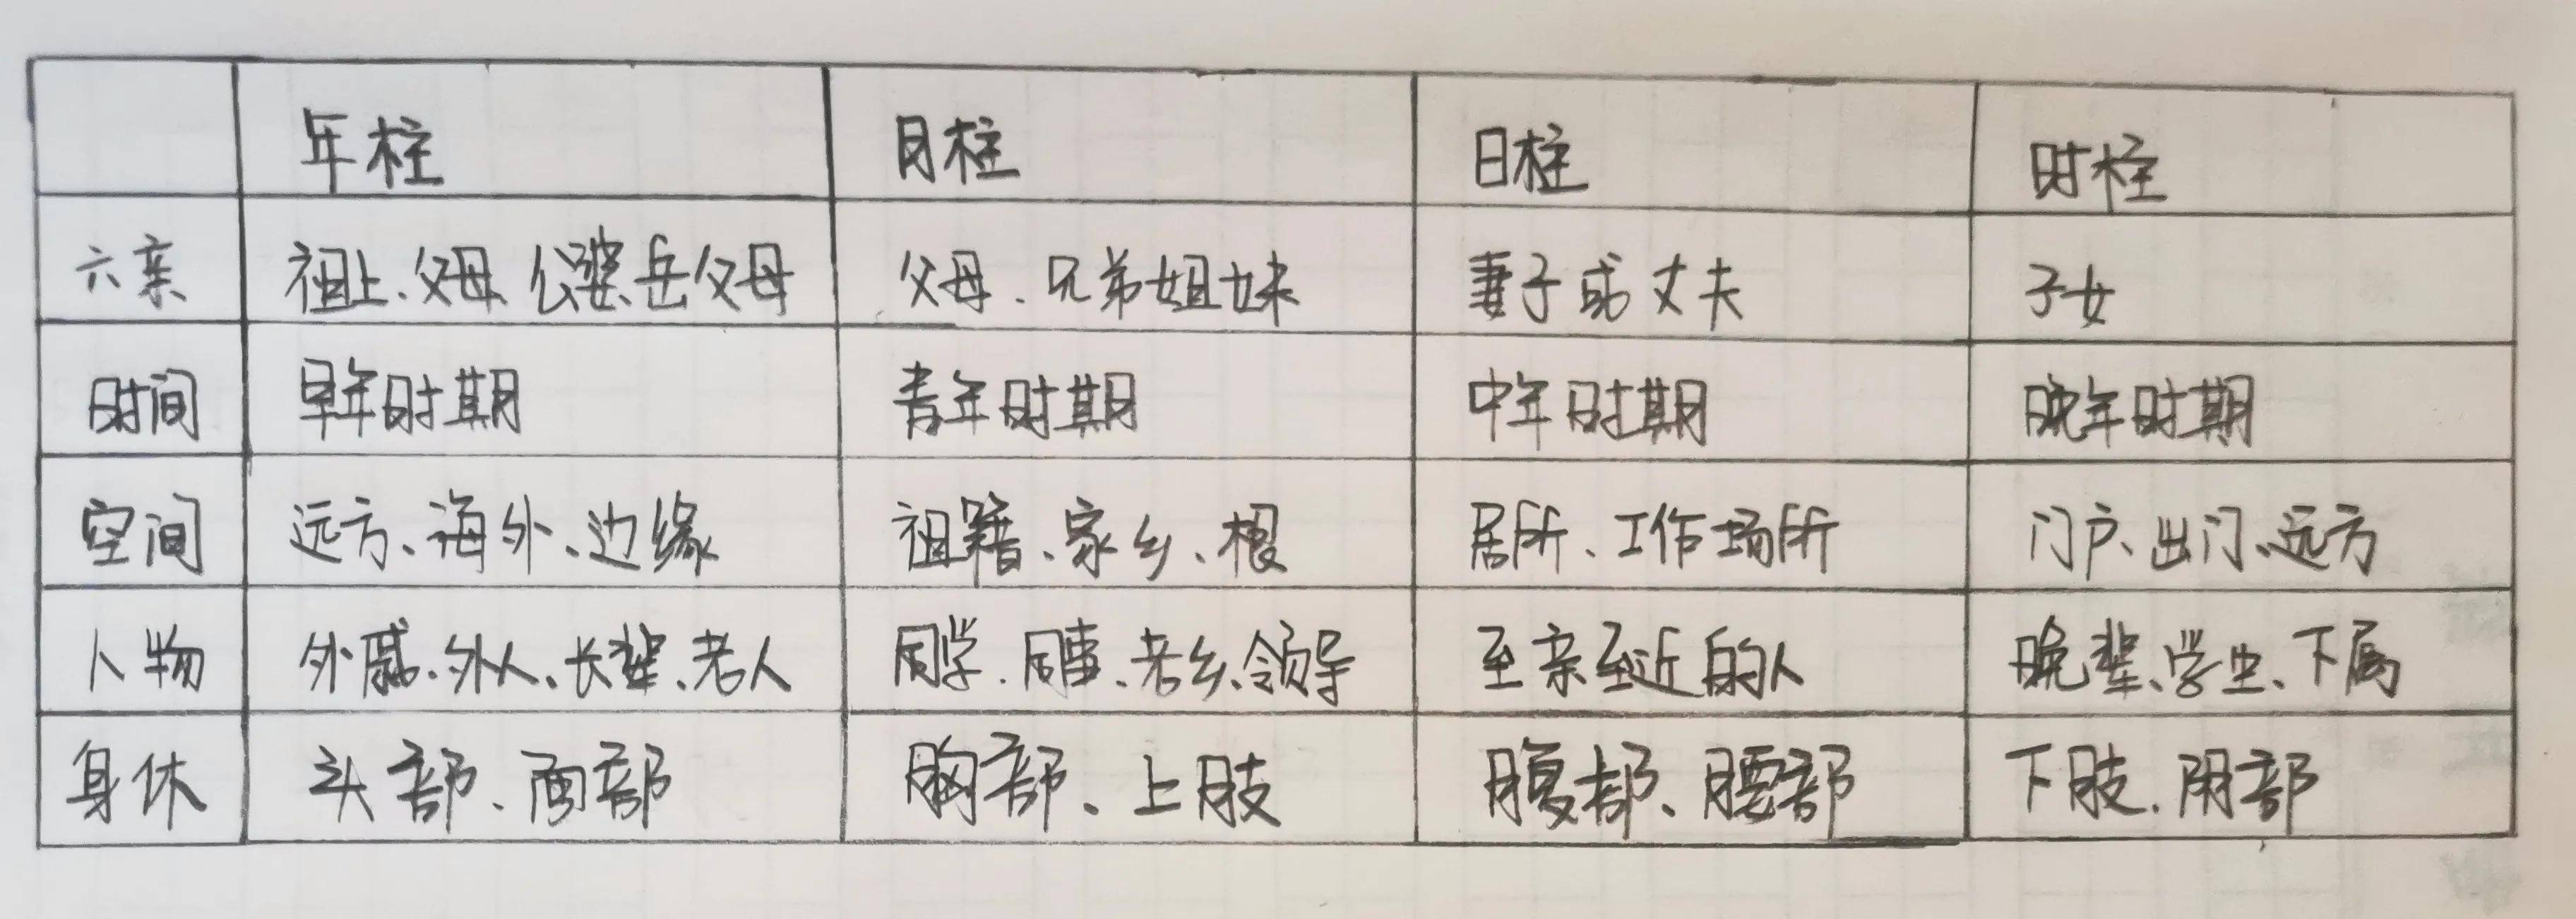 年柱 月柱 日柱 时柱
六亲 祖上、父母、公婆、岳父母 父母、兄弟姐妹 妻子或丈夫 子女
时间 早年时期 青年时期 中年时期 晚年时期
空间 远方、海外、边缘 祖籍、家乡、根 居所、工作场所 门户、出门、远方
人物 外戚、外人、长辈、老人 同学、同事、老乡、领导 至亲至近的人 晚辈、学生、下属
身体 头部、面部 胸部、上肢 腹部、腰部 下肢、阴部